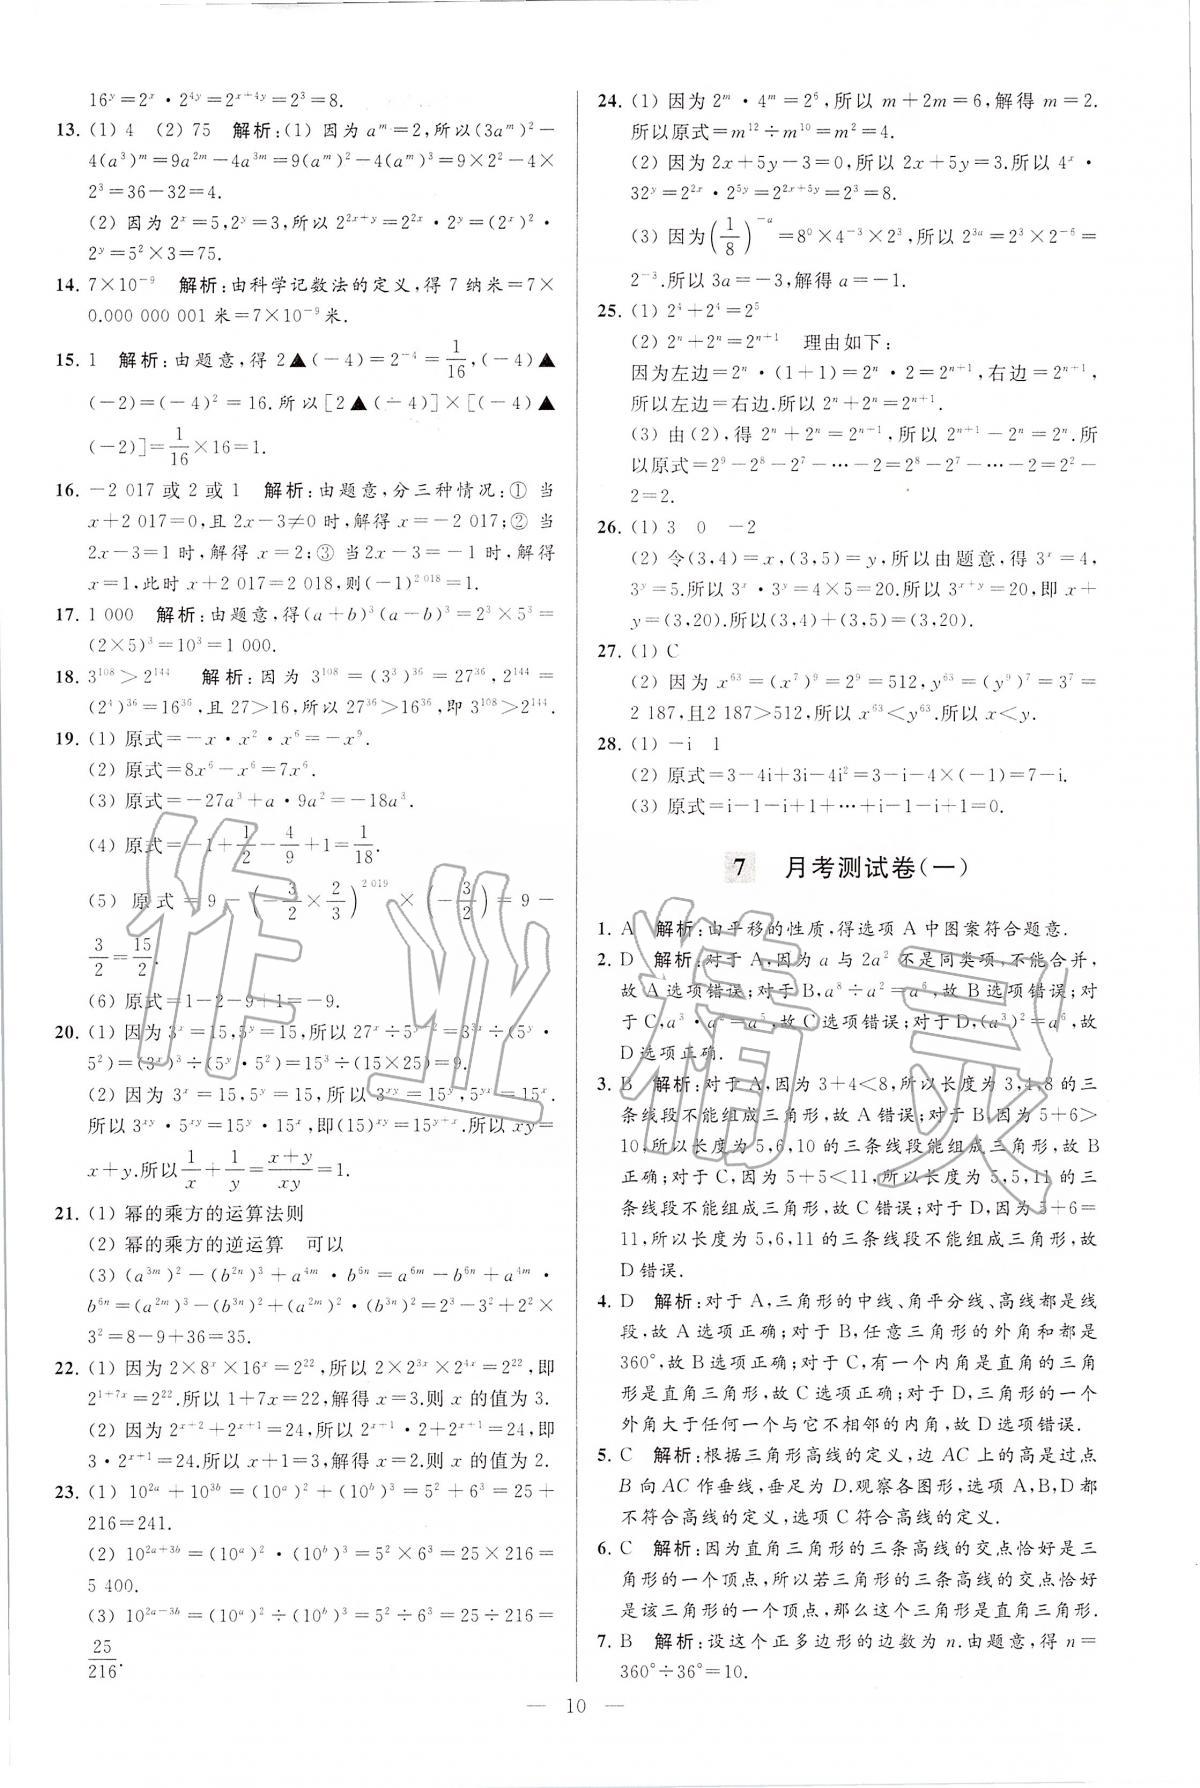 16^y=2^x·2^{4y}=2^{x+4y}=2^3=8.
13. (1) 4 (2) 75 解析:(1) 因为 a^m=2,所以(3a^m)^2-
4(a^3)^m=9a^{2m}-4a^{3m}=9(a^m)^2-4(a^m)^3=9×2^2-4×
2^3=36-32=4.
(2) 因为 2^x=5,2^y=3,所以 2^{2x+y}=2^{2x}·2^y=(2^x)^2·
2^y=5^2×3=75.
14. 7×10^{-9} 解析:由科学记数法的定义,得 7 纳米=7×
0.000 000 001 米=7×10^{-9}米.
15. 1 解析:由题意,得 2▲(-4)=2^{-4}=1/16,(-4)▲
(-2)=(-4)^2=16.所以[2▲(-4)]×[(-4)▲
(-2)]=1/16×16=1.
16. -2 017 或 2 或 1 解析:由题意,分三种情况:① 当
x+2 017=0,且 2x-3≠0 时,解得 x=-2 017;② 当
2x-3=1 时,解得 x=2;③ 当2x-3=-1 时,解得
x=1,此时 x+2 017=2 018,则(-1)^{2 018}=1.
17. 1 000 解析:由题意,得(a+b)^3(a-b)^3=2^3×5^3=
(2×5)^3=10^3=1 000.
18. 3^{108}>2^{144} 解析:因为 3^{108}=(3^3)^{36}=27^{36},2^{144}=
(2^4)^{36}=16^{36},且 27>16,所以 27^{36}>16^{36},即 3^{108}>2^{144}.
19. (1) 原式=-x·x^2·x^6=-x^9.
(2) 原式=8x^6-x^6=7x^6.
(3) 原式=-27a^3+a·9a^2=-18a^3.
(4) 原式=-1+1/2-4/9+1=1/18.
(5) 原式=9-(-3/2×2/3)^{2 019}×(-3/2)=9-
3/2=15/2.
(6) 原式=1-2-9+1=-9.
20. (1) 因为 3^x=15,5^y=15,所以 27^x÷5^{y+2}=3^{3x}÷(5^y·
5^2)=(3^x)^3÷(5^y·5^2)=15^3÷(15×25)=9.
(2) 因为 3^x=15,5^y=15,所以 3^{xy}=15^y,5^{yx}=15^x.
所以 3^{xy}·5^{xy}=15^y·15^x,即(15)^{xy}=15^{y+x}.所以 xy=
x+y.所以1/x+1/y=(x+y)/xy=1.
21. (1) 幂的乘方的运算法则
(2) 幂的乘方的逆运算 可以
(3) (a^{3m})^2-(b^{2n})^3+a^{4m}·b^{6n}=a^{6m}-b^{6n}+a^{4m}·
b^{6n}=(a^{2m})^3-(b^{3n})^2+(a^{2m})^2·(b^{3n})^2=2^3-3^2+2^2×
3^2=8-9+36=35.
22. (1) 因为 2×8^x×16^x=2^{22},所以 2×2^{3x}×2^{4x}=2^{22},即
2^{1+7x}=2^{22}.所以 1+7x=22,解得 x=3.则 x 的值为 3.
(2) 因为 2^{x+2}+2^{x+1}=24,所以 2^{x+1}·2+2^{x+1}=24,即
3·2^{x+1}=24.所以 x+1=3,解得 x=2.则 x 的值为 2.
23. (1) 10^{2a}+10^{3b}=(10^a)^2+(10^b)^3=5^2+6^3=25+
216=241.
(2) 10^{2a+3b}=(10^a)^2·(10^b)^3=5^2×6^3=25×216=
5 400.
(3) 10^{2a-3b}=(10^a)^2÷(10^b)^3=5^2÷6^3=25÷216=
25/216.
24. (1) 因为 2^m·4^m=2^6,所以 m+2m=6,解得 m=2.
所以原式=m^{12}÷m^{10}=m^2=4.
(2) 因为 2x+5y-3=0,所以 2x+5y=3.所以 4^x·
32^y=2^{2x}·2^{5y}=2^{2x+5y}=2^3=8.
(3) 因为(1/8)^{-a}=8^0×4^{-3}×2^3,所以 2^{3a}=2^3×2^{-6}=
2^{-3}.所以 3a=-3,解得 a=-1.
25. (1) 2^4+2^4=2^5
(2) 2^n+2^n=2^{n+1} 理由如下:
因为左边=2^n·(1+1)=2^n·2=2^{n+1},右边=2^{n+1},
所以左边=右边.所以 2^n+2^n=2^{n+1}.
(3) 由(2),得 2^n+2^n=2^{n+1},所以 2^{n+1}-2^n=2^n.所
以原式=2^9-2^8-2^7-…-2=2^8-2^7-…-2=2^2-
2=2.
26. (1) 3 0 -2
(2) 令(3,4)=x,(3,5)=y,所以由题意,得 3^x=4,
3^y=5.所以 3^x·3^y=4×5=20.所以 3^{x+y}=20,即 x+
y=(3,20).所以(3,4)+(3,5)=(3,20).
27. (1) C
(2) 因为 x^{63}=(x^7)^9=2^9=512,y^{63}=(y^9)^7=3^7=
2 187,且2 187>512,所以 x^{63}<y^{63}.所以 x<y.
28. (1) -i 1
(2) 原式=3-4i+3i-4i^2=3-i-4×(-1)=7-i.
(3) 原式=i-1-i+1+…+i-1-i+1=0.
7 月考测试卷(一)
1. A 解析:由平移的性质,得选项 A 中图案符合题意.
2. D 解析:对于 A,因为 a 与 2a^2 不是同类项,不能合并,
故 A 选项错误;对于 B,a^8÷a^2=a^6,故 B 选项错误;对
于 C,a^3·a^2=a^5,故 C 选项错误;对于 D,(a^3)^2=a^6,故
D 选项正确.
3. B 解析:对于 A,因为 3+4<8,所以长度为 3,4,8 的三
条线段不能组成三角形,故 A 错误;对于 B,因为 5+6>
10,所以长度为 5,6,10 的三条线段能组成三角形,故 B
正确;对于 C,因为 5+5<11,所以长度为 5,5,11 的三
条线段不能组成三角形,故 C 错误;对于 D,因为 5+6=
11,所以长度为 5,6,11 的三条线段不能组成三角形,故
D 错误.
4. D 解析:对于 A,三角形的中线、角平分线、高线都是线
段,故 A 选项正确;对于 B,任意三角形的外角和都是
360°,故 B 选项正确;对于 C,有一个内角是直角的三角
形是直角三角形,故 C 选项正确;对于 D,三角形的一个
外角大于任何一个与它不相邻的内角,故 D 选项错误.
5. C 解析:根据三角形高线的定义,边 AC 上的高是过点
B 向 AC 作垂线,垂足为 D.观察各图形,选项 A,B,D 都
不符合高线的定义,选项 C 符合高线的定义.
6. C 解析:因为直角三角形的三条高线的交点恰好是三
角形的一个顶点,所以若三角形的三条高线的交点恰好
是该三角形的一个顶点,那么这个三角形是直角三角形.
7. B 解析:设这个正多边形的边数为 n.由题意,得 n=
360°÷36°=10.
— 10 —
作业精灵